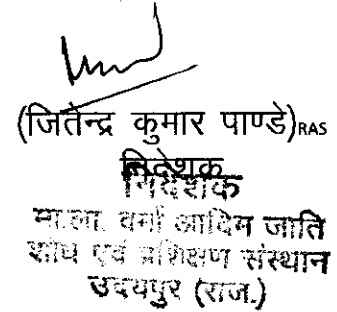 (जितेन्द्र कुमार पाण्डे)RAS
निदेशक
निदेशक
मा.ला. वर्मा आदिम जाति
शोध एवं प्रशिक्षण संस्थान
उदयपुर (राज.)